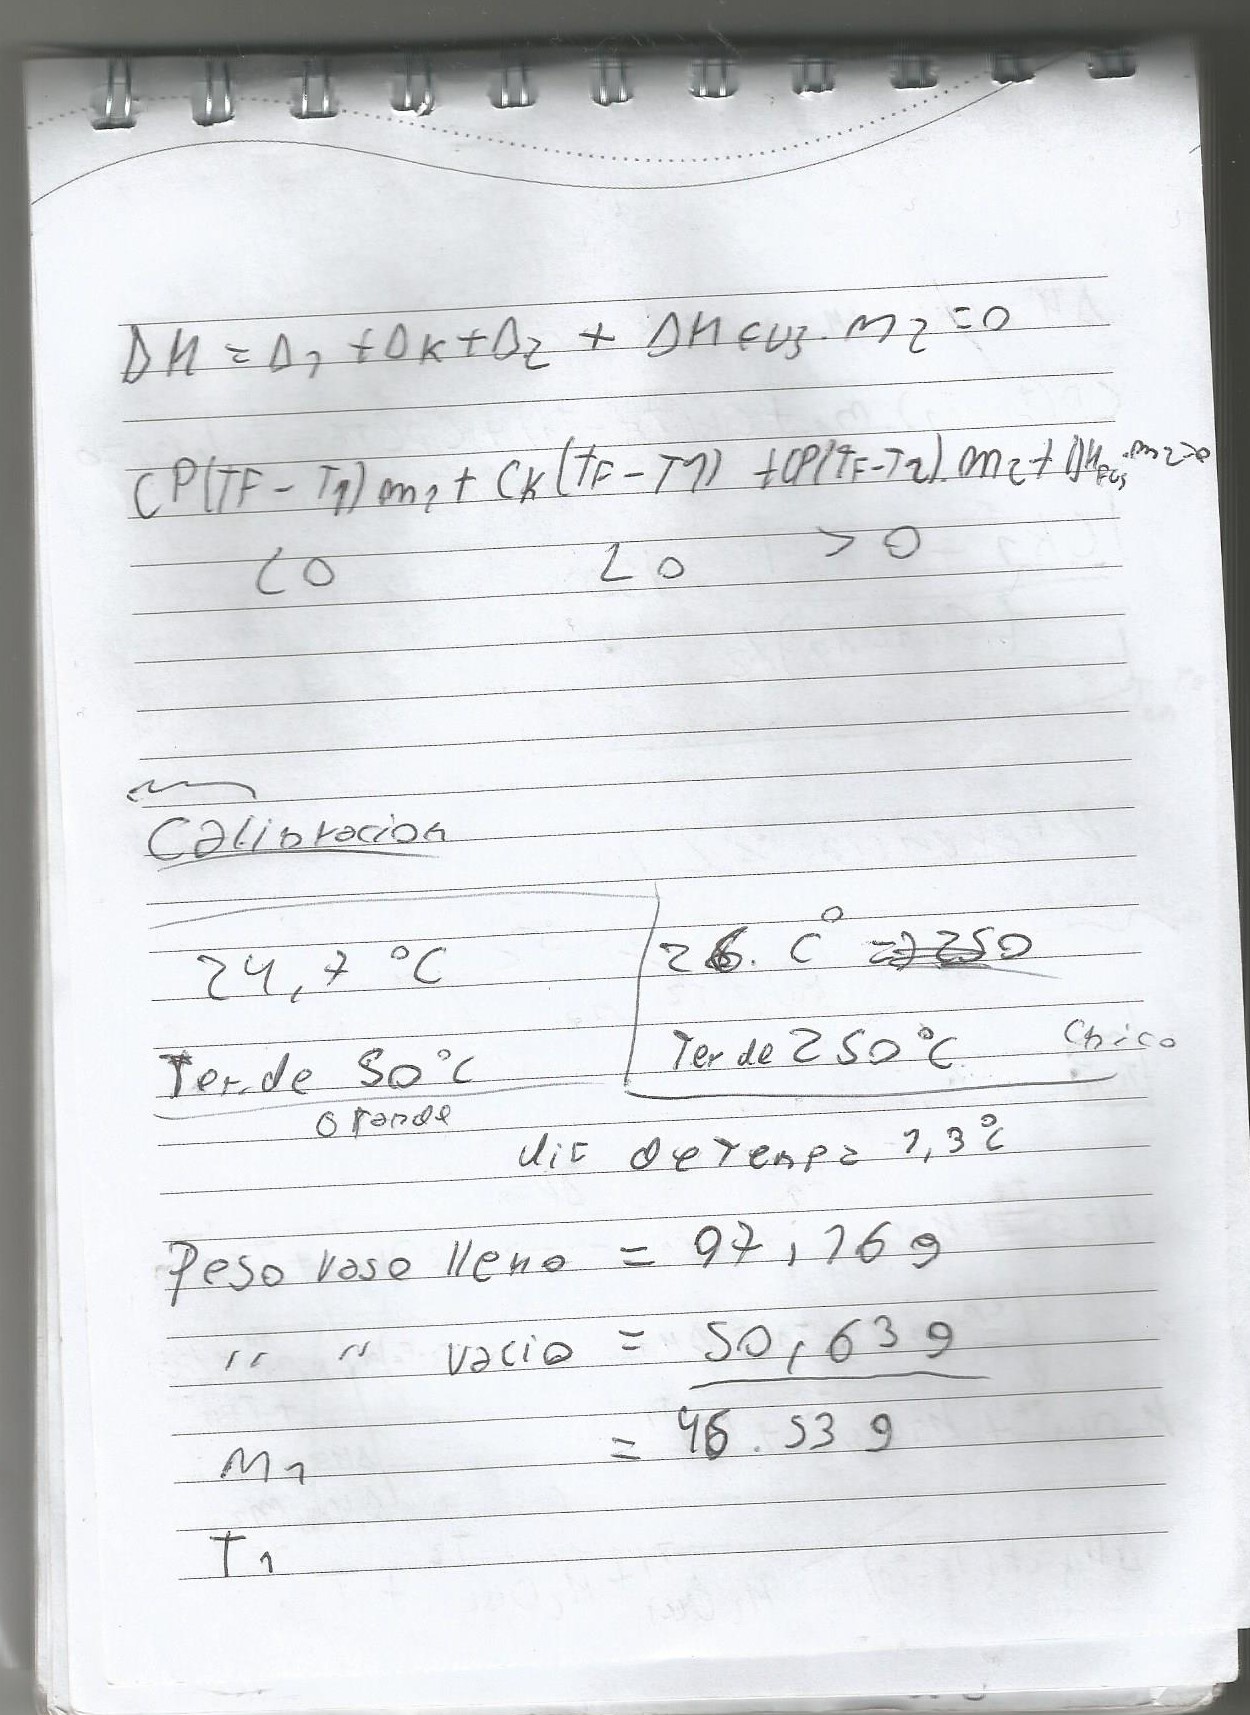 ΔH = Δ1 + ΔK + Δ2 + ΔH FUS. m2 = 0
CP(TF - T1) m1 + CK (TF - T1) + CP(TF-T2). m2 + ΔH FUS. m2 = 0
<0 <0 >0
Calibracion
24,7 °C
Ter. de 50°C
Grande
26. C° => 250
Ter de 250°C Chico
dif de Temp = 1,3°C
Peso vaso lleno = 97,16 g
" " vacio = 50,63 g
m1 = 46.53 g
T1